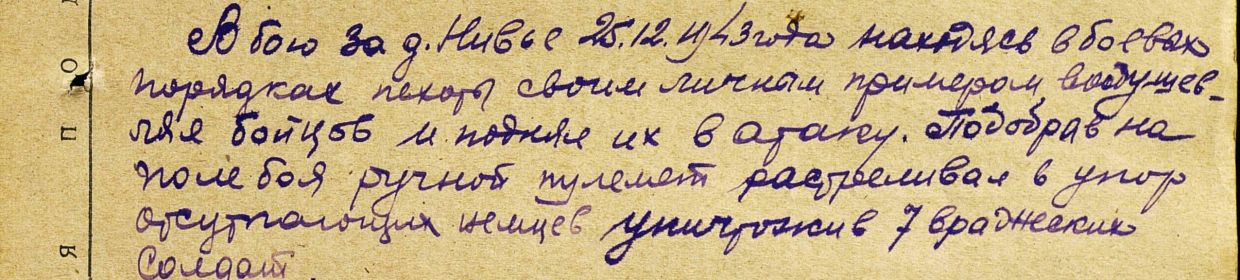 В бою за д. Нивье 25.12.1943 года находясь в боевых
порядках пехоты своим личным примером воодушев-
лял бойцов и поднял их в атаку. Подобрав на
поле боя ручной пулемет расстреливал в упор
отступающих немцев уничтожив 7 враджеских
солдат.
О
П
Я